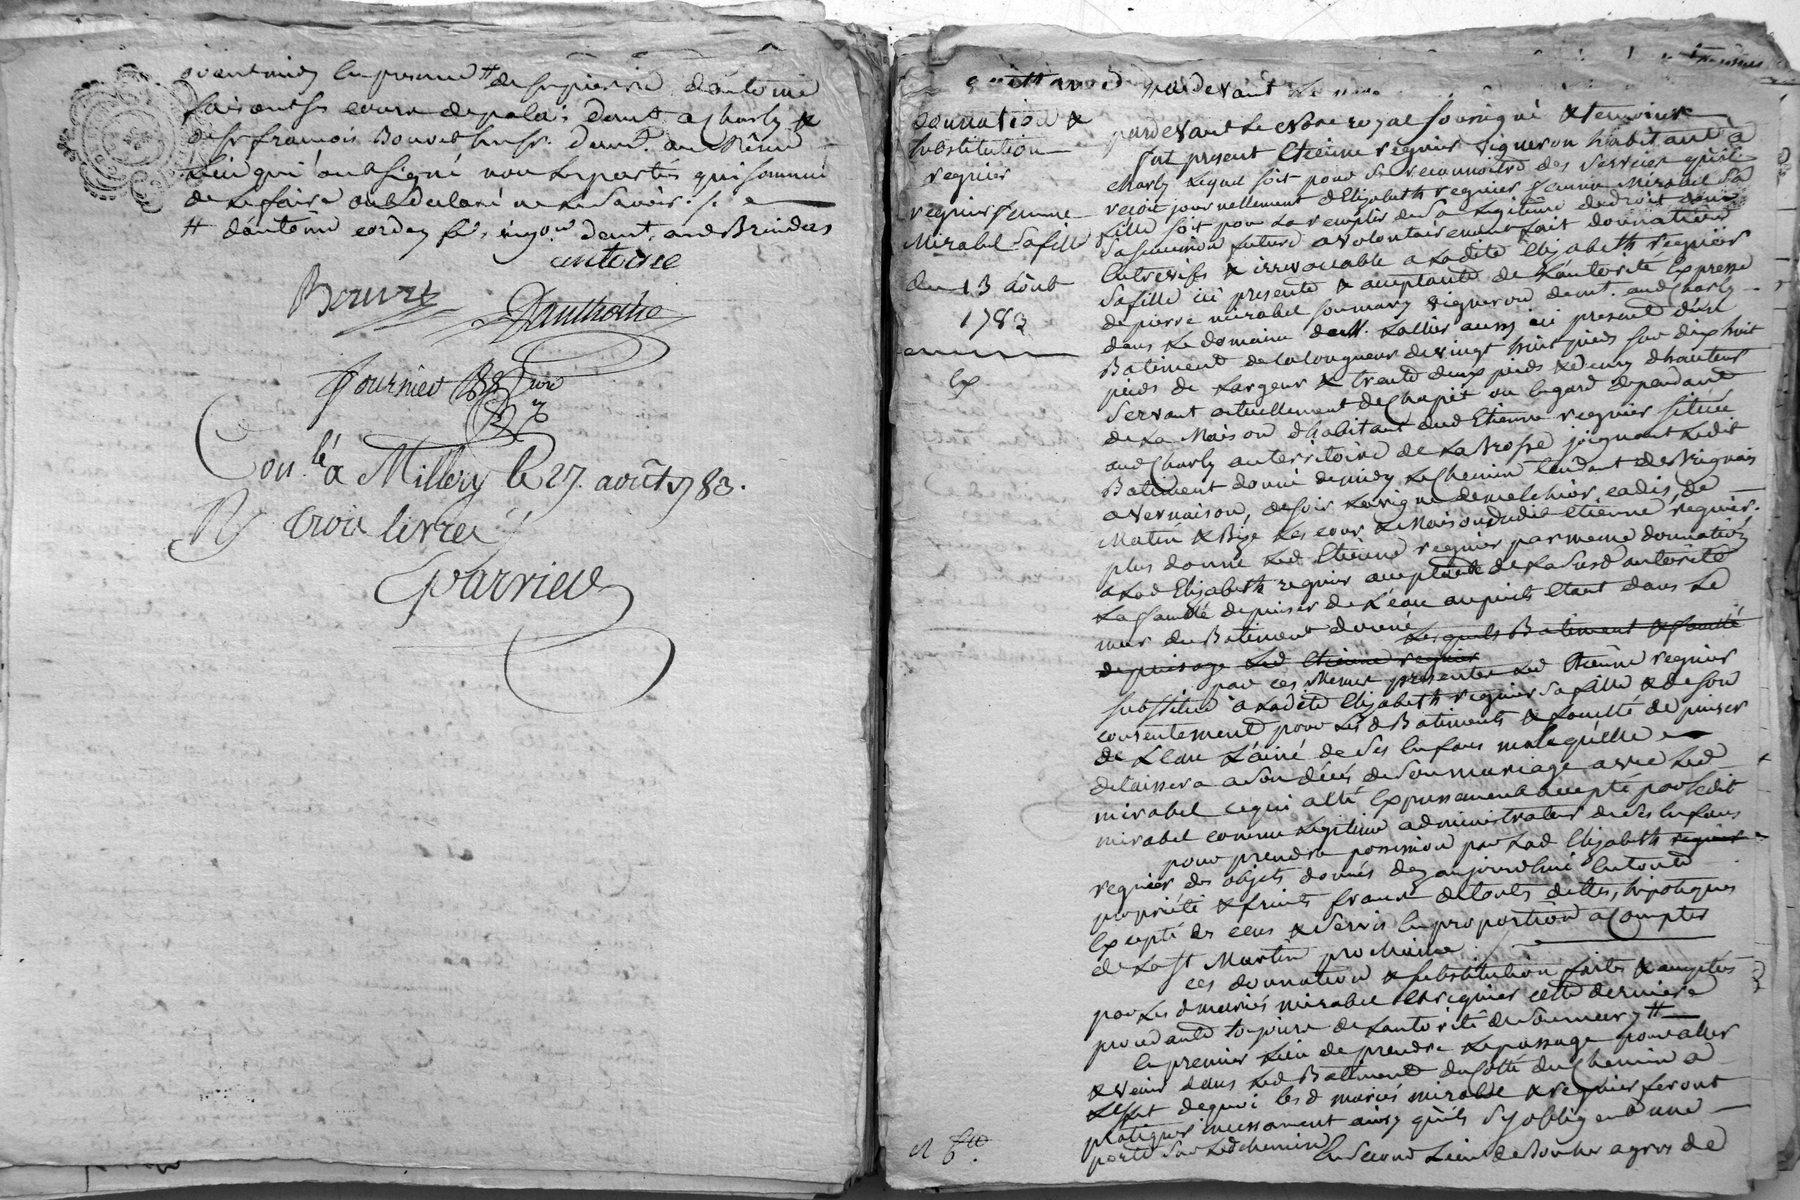 avant midy en presence # de Sr pierre d'antoine
faisant Sr cour de palais demt. a Charly &
de Sr francois Bouvet demt. au
lieu qui ont signé non les parties qui sommé
de le faire ont declaré ne le savoir. /. e
# d'antoine vigon demt. aud Brindas
antoine
Bouvet
Danthoine
fournier
Conlé a Millery le 27 août 1783.
Ry trois livres
Parrieu
quittance
pardevant le
donnation &
substitution
regnier
regnier femme
Mirabel sa fille
du 13 août
1783
Ex
pardevant le notre royal soussigné & temoins
fut present Etienne regnier vigneron habitant a
Charly lequel soit pour se reconnoitre des services qu'il
recoit journellement d'Elizabeth regnier femme Mirabel sa
fille soit pour la remplir de sa legitime de droit dans
sa succession future a volontairement fait donnation
entrevifs & irrevocable a ladite Elizabeth regnier
sa fille ici presente & acceptante de l'autorité Expresse
de pierre mirabel son mary vigneron demt. aud Charly
dans le domaine de Mr. Lallier aussy ici present d'un
Batiment de la longueur de vingt huit pieds sur dix huit
pieds de largeur & trente deux pieds & demy d'hauteur
servant actuellement de Chapit ou hegard dependant
de la Maison d'habitant dud Etienne regnier située
aud Charly au territoire de la Brosse joignant ledit
Batiment donné de midy le chemin tendant de Brignais
a vernaison, de soir la vigne de melchior cadis, de
Matin & Bize les cour & Maison dudit Etienne regnier.
plus donne led Etienne regnier par meme donnation
a lad Elizabeth regnier acceptante de la susd autorité
la faculté de puiser de l'eau au puits etant dans le
mur du Batiment donné lesquels Batiment & faculté
de puisage led Etienne regnier
par ces Memes presentes led Etienne regnier
substitue a ladite Elizabeth regnier sa fille & de son
consentement pour lesd Batiments & faculté de puiser
de l'eau l'ainé de ses Enfans male qu'elle
delaissera a son décés de son mariage avec led
mirabel ce qui a été Expressement accepté par ledit
mirabel comme legitime administrateur de ses Enfans
pour prendre possession par lad Elizabeth regnier
regnier des objets donnés dez aujourdhui En toute
propriété & fruits francs de toutes dettes, hipoteques
Excepté des cens & servis En proportion a Compter
de la St Martin prochaine
ces donnation & substitution faites & acceptées
par lesd mariés mirabel & regnier cette derniere
procedante toujours de l'autorité de son mary #
le premier lieu de prendre le passage pour aller
& venir dans led Batiment du côté du Chemin a
l'effet de quoi lesd mariés mirabel & regnier feront
pratiquer incessament ainsy qu'ils s'y obligent une
porte sur led chemin En second lieu de Boucher a gros de